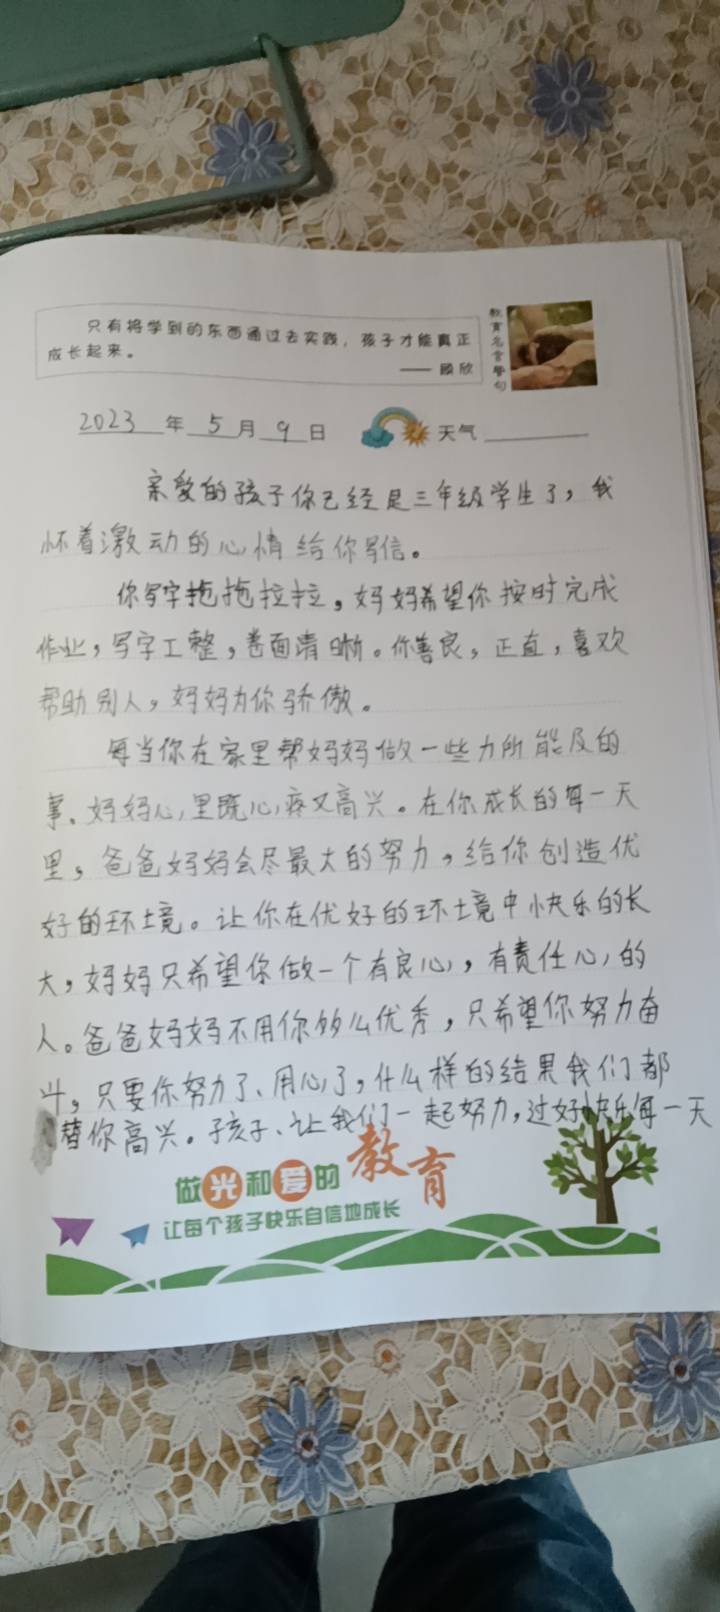 只有将学到的东西通过去实践，孩子才能真正
成长起来。
——顾欣
教育名言警句
2023年5月9日 天气
亲爱的孩子你已经是三年级学生了，我
怀着激动的心情给你写信。
你写字拖拖拉拉，妈妈希望你按时完成
作业，写字工整，卷面清晰。你善良，正直，喜欢
帮助别人，妈妈为你骄傲。
每当你在家里帮妈妈做一些力所能及的
事、妈妈心里既心疼又高兴。在你成长的每一天
里，爸爸妈妈会尽最大的努力，给你创造优
好的环境。让你在优好的环境中快乐的长
大，妈妈只希望你做一个有良心，有责任心的
人。爸爸妈妈不用你多么优秀，只希望你努力奋
斗，只要你努力了、用心了，什么样的结果我们都
替你高兴。孩子、让我们一起努力，过好快乐每一天
做光和爱的教育
让每个孩子快乐自信地成长